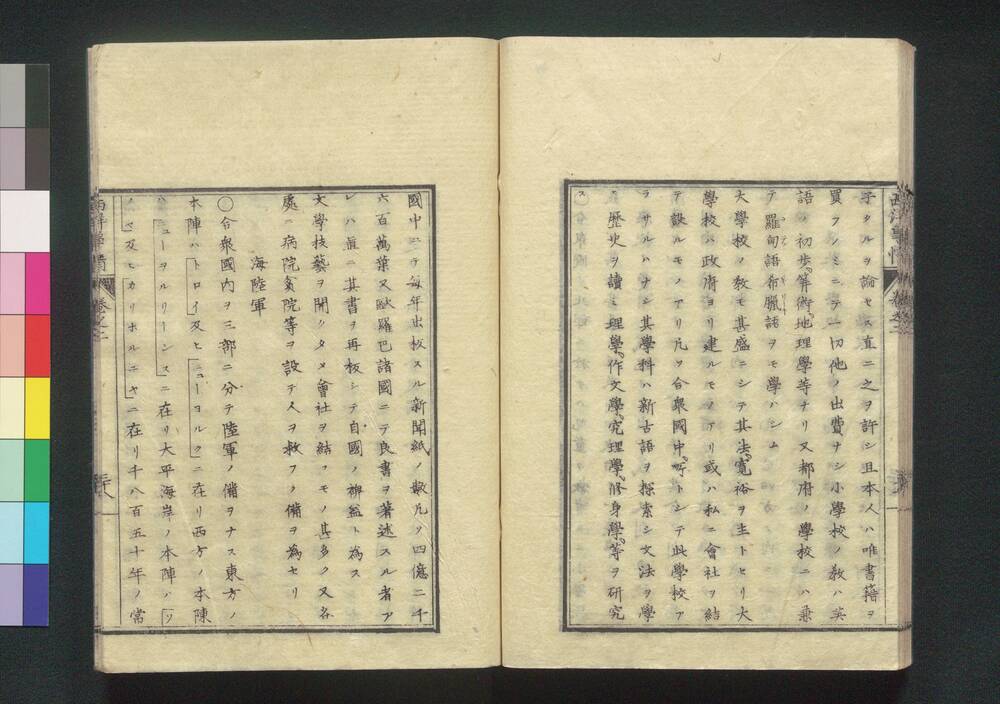 子タルヲ論セス直ニ之ヲ許シ且本人ハ唯書籍ヲ
買フノミニテ一切他ノ出費ナシ小學校ノ教ハ英
語ノ初歩算術地理學等ナリ又都府ノ學校ニハ兼
テ羅甸語希臘語ヲモ學ハシム
大學校ノ教モ甚盛ニシテ其法寛裕ヲ主トセリ大
學校ハ政府ヨリ建ルモノアリ或ハ私ニ會社ヲ結
テ設ルモノアリ凡ソ合衆國中所トシテ此學校ア
ラサルハナシ其學科ハ新古語ヲ探索シ文法ヲ學
ヒ歴史ヲ讀ミ理學作文學究理學修身學等ヲ研究
ス
國中ニテ毎年出板スル新聞紙ノ數凡ソ四億二千
六百萬葉又歐羅巴諸國ニテ良書ヲ著述スル者ア
レハ直ニ其書ヲ再板シテ自國ノ裨益ト為ス
文學技藝ヲ開クタメ會社ヲ結フモノ甚多ク又各
處ニ病院貧院等ヲ設テ人ヲ救フノ備ヲ為セリ
海陸軍
○合衆國内ヲ三部ニ分テ陸軍ノ備ヲナス東方ノ
本陣ハトロイ及ヒニューヨルクニ在リ西方ノ本陳
ニューヲルリーンスニ在リ大平海岸ノ本陣ハソ
ノヤ及ヒカリホルニヤニ在リ千八百五十年ノ常